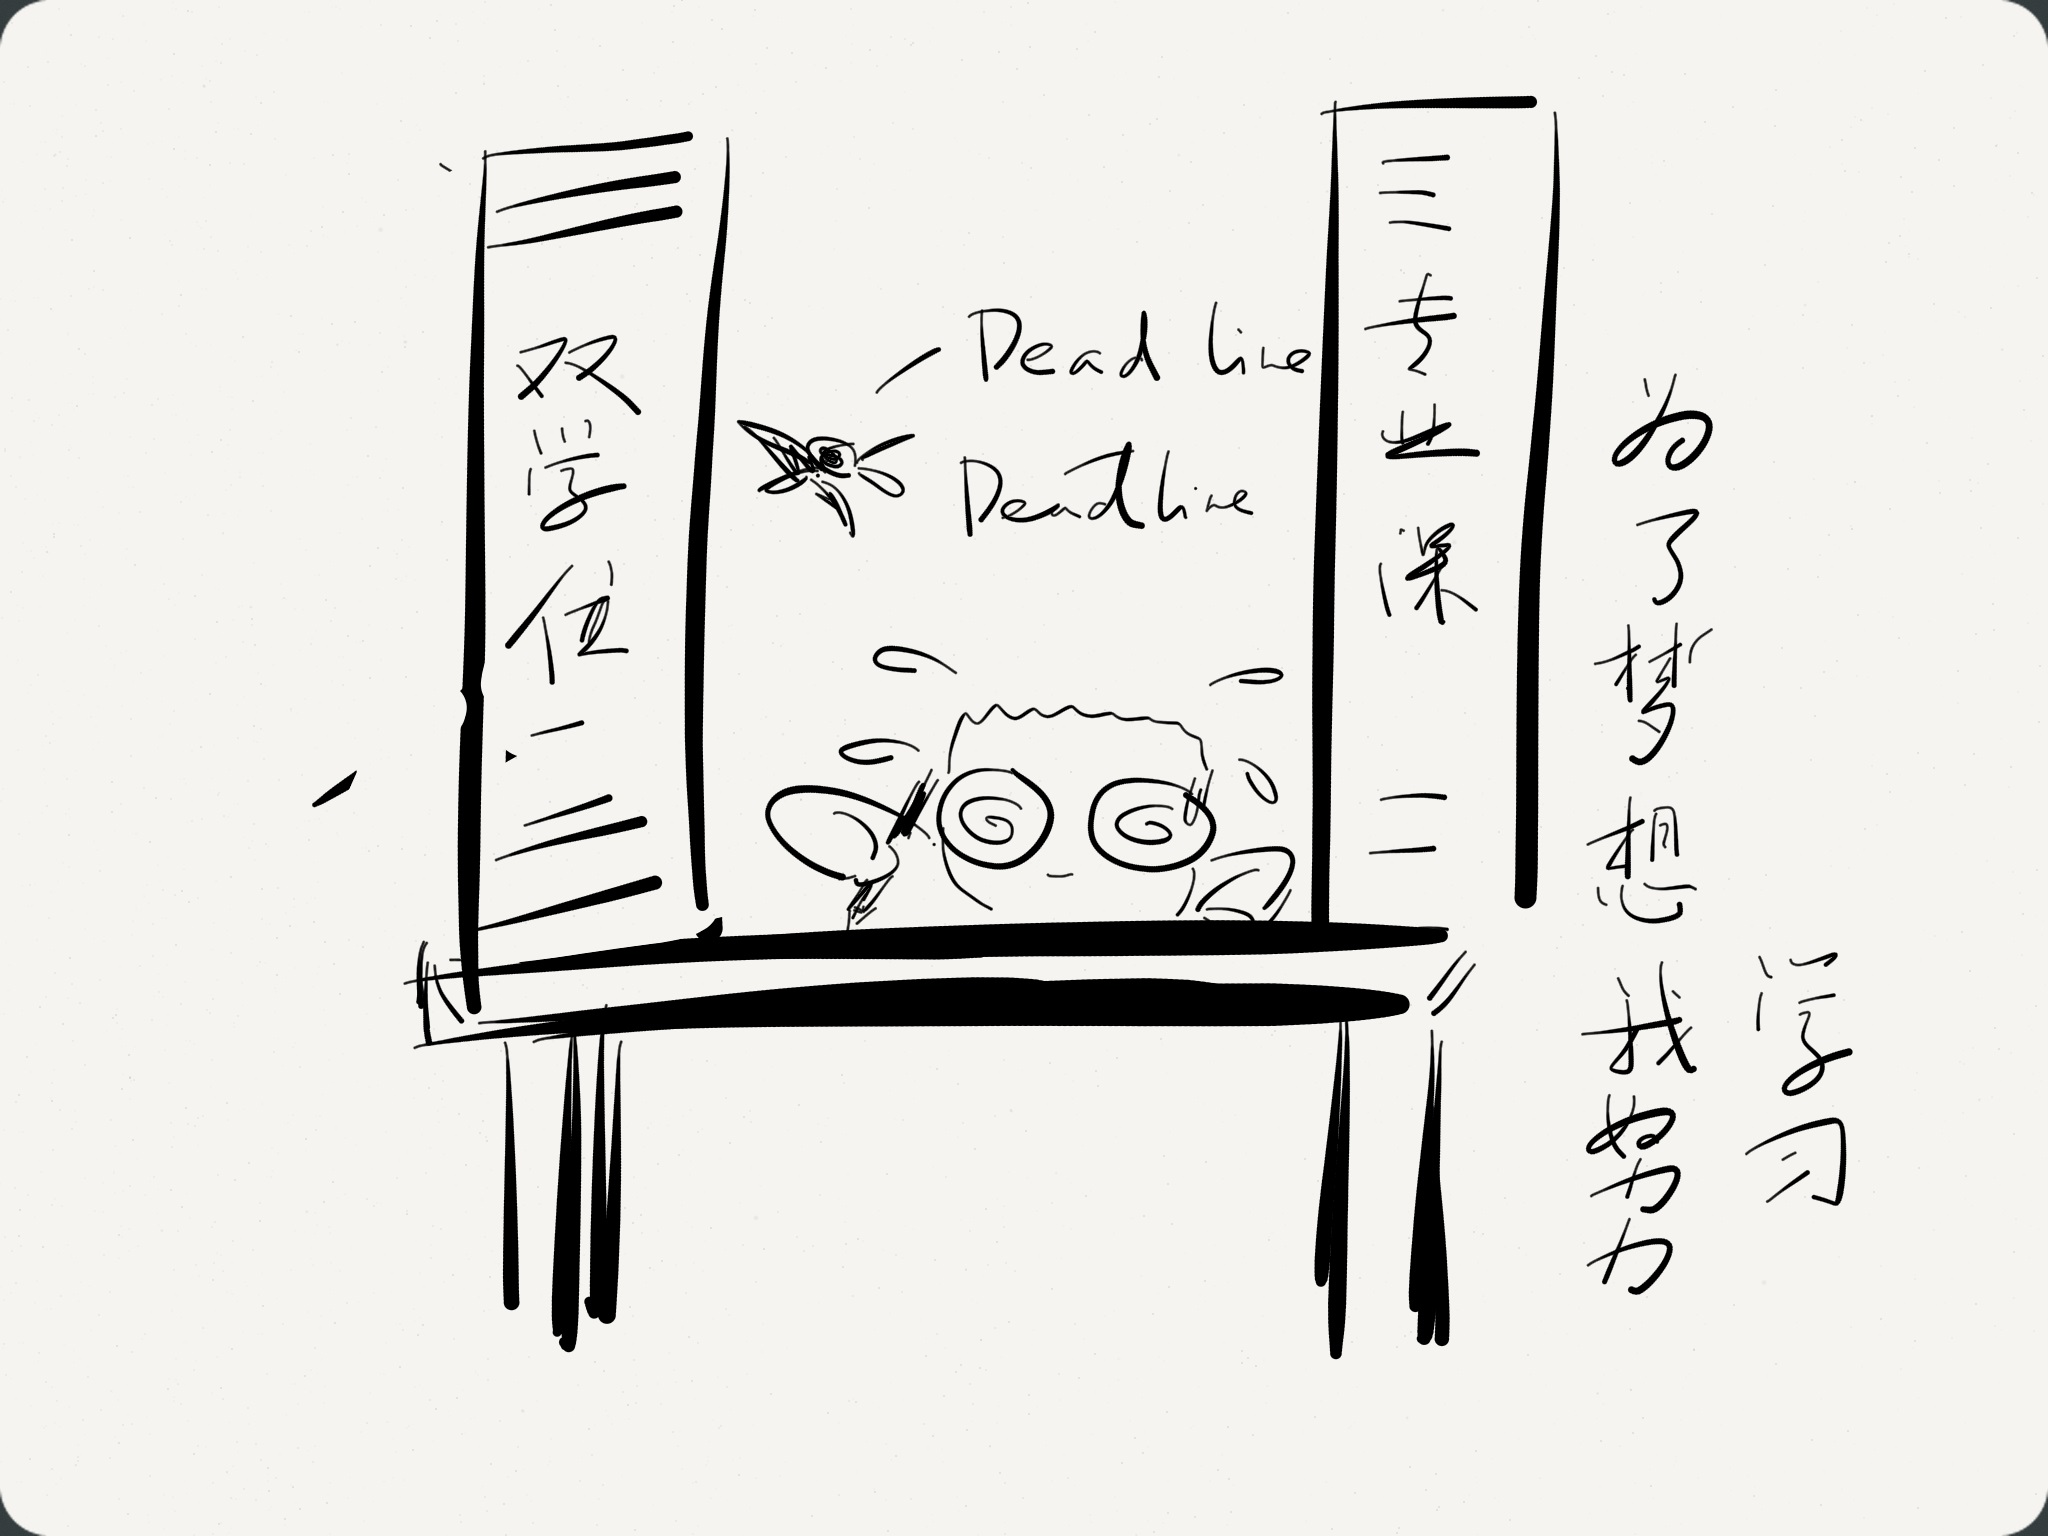 双学位
Dead line
Deadline
三专业
为了梦想我努力
学习